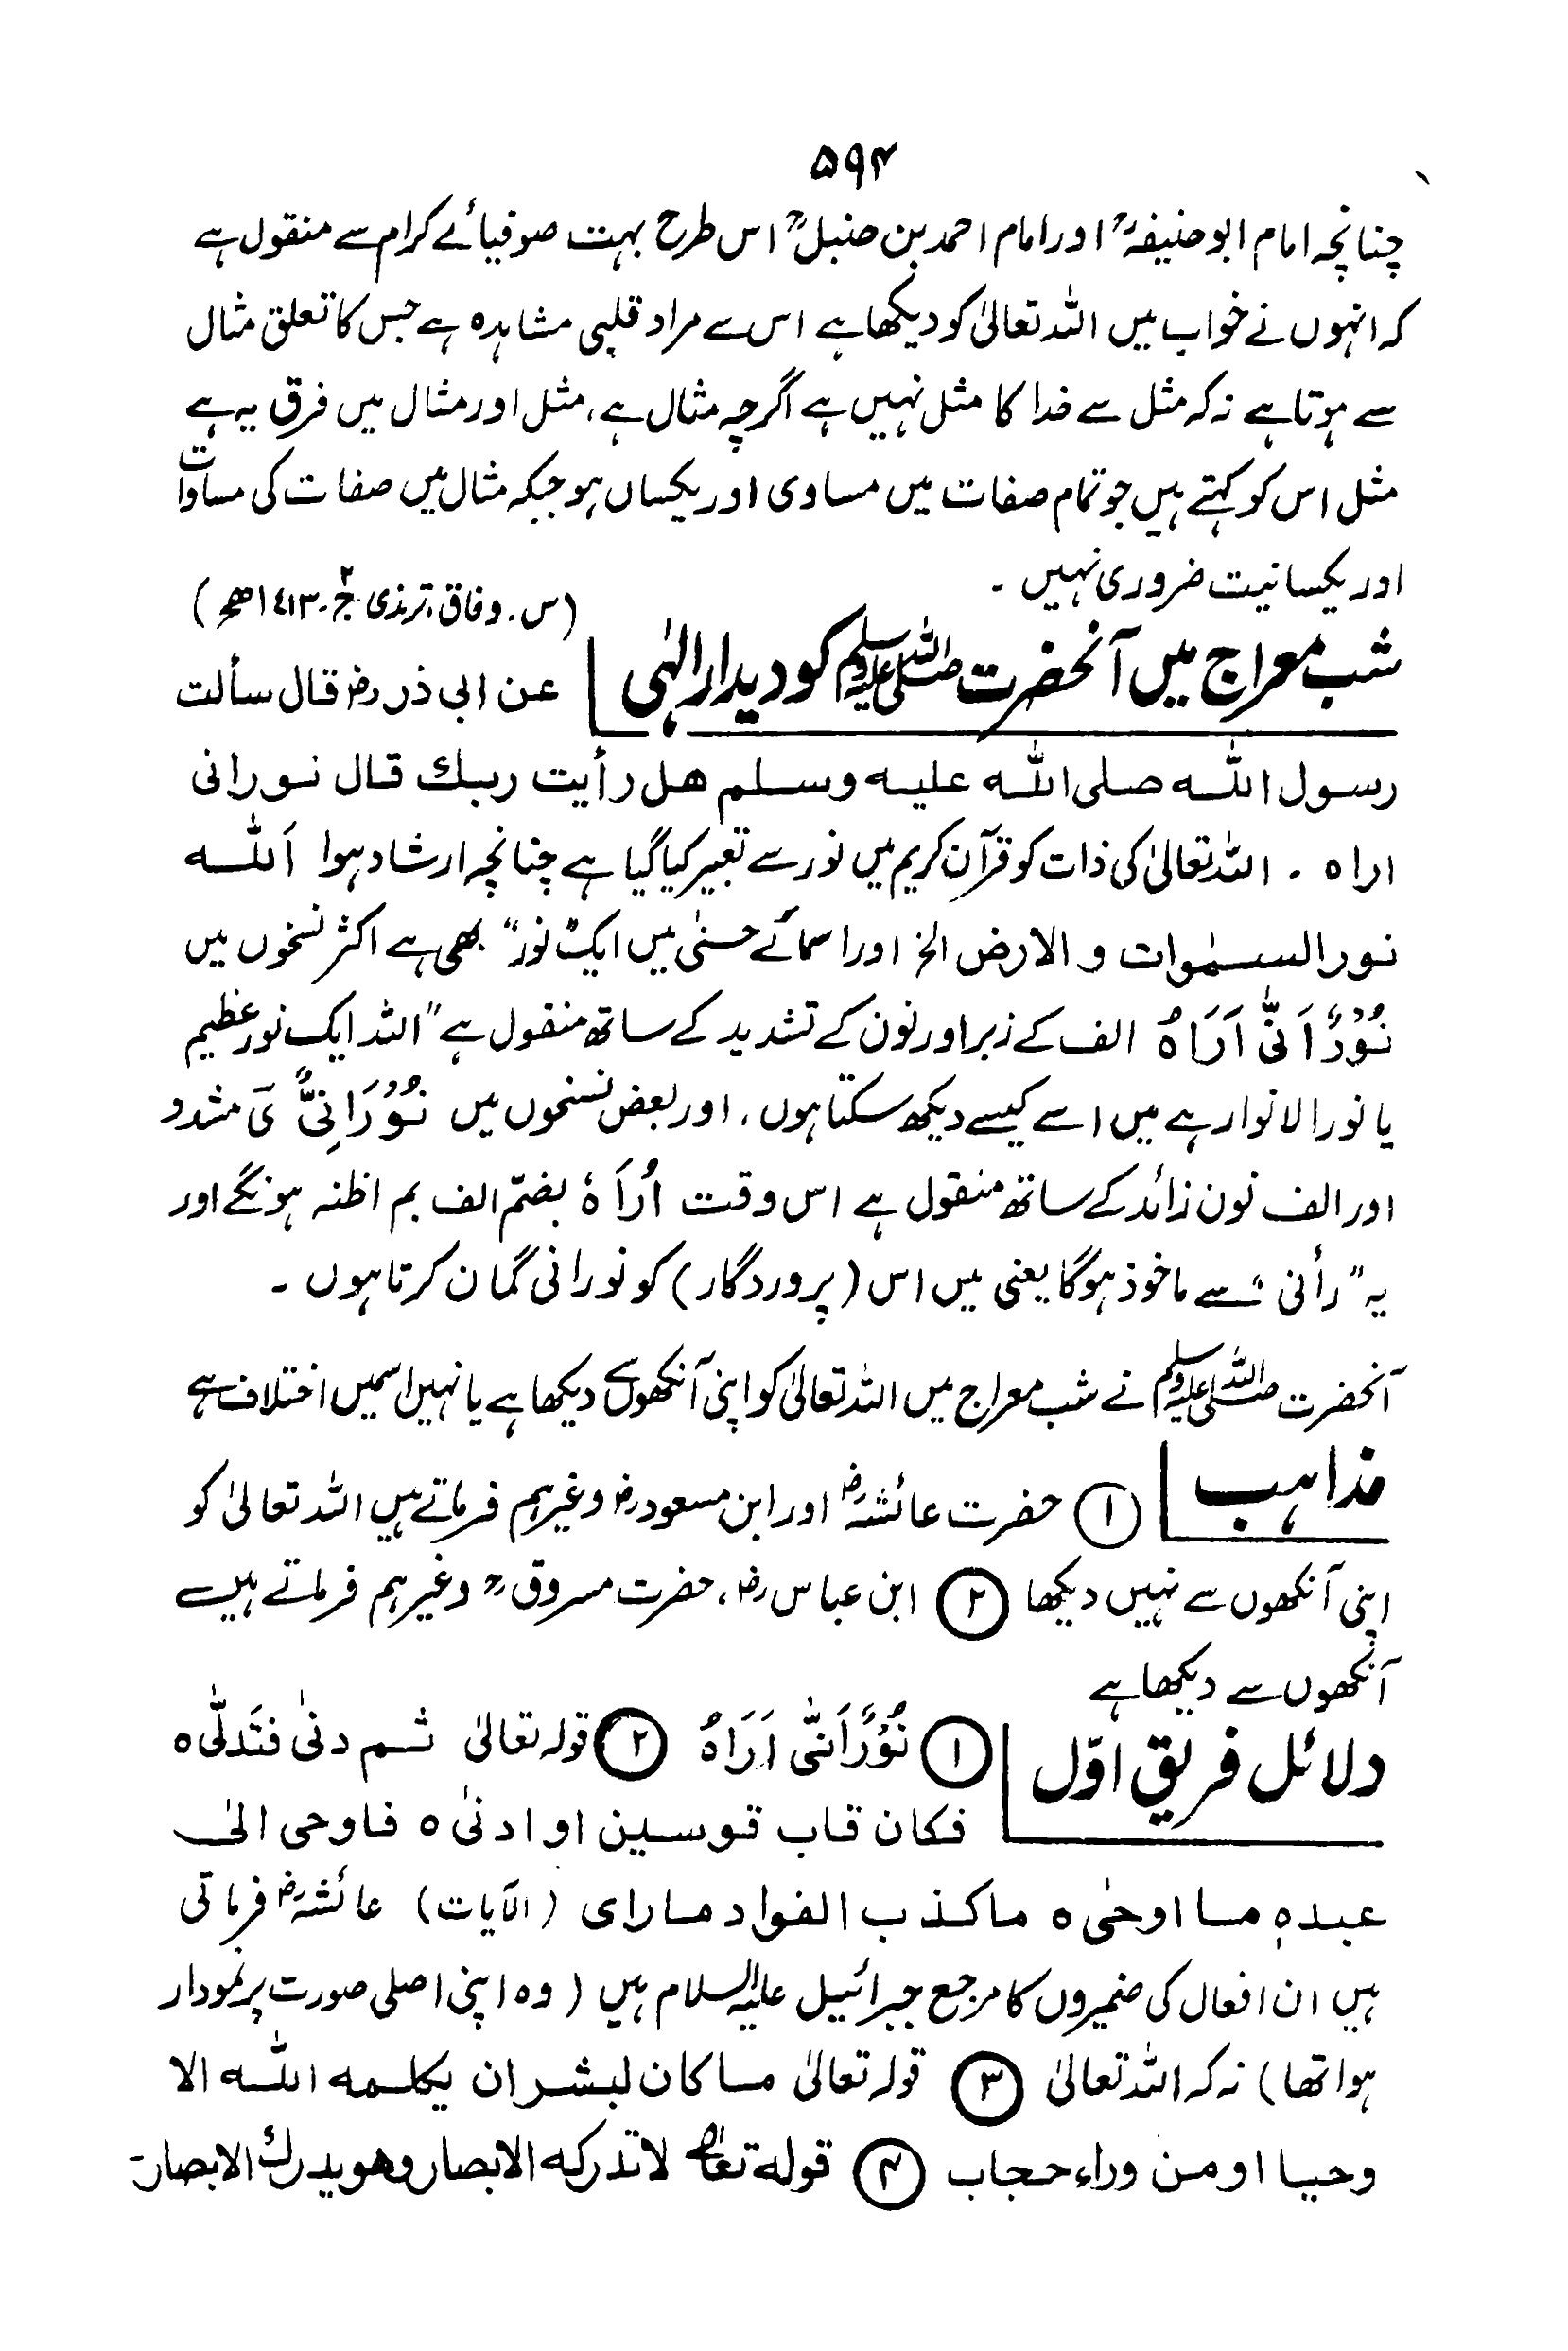 ۵۹۴
چنانچہ امام ابو حنیفہؒ اور امام احمد بن حنبلؒ اس طرح بہت صوفیائے کرام سے منقول ہے
کہ انہوں نے خواب میں اللہ تعالیٰ کو دیکھا ہے اس سے مراد قلبی مشاہدہ ہے جس کا تعلق مثال
سے ہوتا ہے نہ کہ مثل سے خدا کا مثل نہیں ہے اگرچہ مثال ہے، مثل اور مثال میں فرق یہ ہے
مثل اس کو کہتے ہیں جو تمام صفات میں مساوی اور یکساں ہو جبکہ مثال میں صفات کی مساوات
اور یکسانیت ضروری نہیں ۔
(س. وفاق، ترمذی ج۲۔ ۱٤۱۳ھ)
شب معراج میں آنحضرت ﷺ کو دیدار الٰہی
عن ابی ذر رض قال سألت
رسول اللّٰه صلی اللّٰه علیه وسلم هل رأیت ربك قال نورانی
اراه ۔ اللہ تعالیٰ کی ذات کو قرآن کریم میں نور سے تعبیر کیا گیا ہے چنانچہ ارشاد ہوا اَللّٰه
نور السمٰوات و الارض الخ اور اسمائے حسنیٰ میں ایک ”نور“ بھی ہے اکثر نسخوں میں
نُوْرٌ اَنّٰی اَرَاهُ الف کے زبر اور نون کے تشدید کے ساتھ منقول ہے ”اللہ ایک نور عظیم
یا نور الانوار ہے میں اسے کیسے دیکھ سکتا ہوں، اور بعض نسخوں میں نُوْرَانِیٌّ یَ مشدد
اور الف نون زائد کے ساتھ منقول ہے اس وقت اُرَاَهٗ بضمّ الف بم اظنہ ہونگے اور
یہ ”رأنی“ سے ماخوذ ہوگا یعنی میں اس (پروردگار) کو نورانی گمان کرتا ہوں ۔
آنحضرت ﷺ نے شب معراج میں اللہ تعالیٰ کو اپنی آنکھوں سے دیکھا ہے یا نہیں اسمیں اختلاف ہے
مذاہب
① حضرت عائشہ رض اور ابن مسعود رض وغیرہم فرماتے ہیں اللہ تعالیٰ کو
اپنی آنکھوں سے نہیں دیکھا ② ابن عباس رض، حضرت مسروقؒ وغیرہم فرماتے ہیں
آنکھوں سے دیکھا ہے
دلائل فریق اوّل
① نُوْرٌ اَنّٰی اَرَاهُ ② قولہ تعالیٰ ثم دنیٰ فتَدَلّٰی ه
فکان قاب قوسین او ادنیٰ ه فاوحی الیٰ
عبدہٖ ما اوحیٰ ه ماکذب الفواد ما رای (الآیات) عائشہ رض فرماتی
ہیں ان افعال کی ضمیروں کا مرجع جبرائیل علیہ السلام ہیں (وہ اپنی اصلی صورت پر نمودار
ہوا تھا) نہ کہ اللہ تعالیٰ ③ قولہ تعالیٰ ما کان لبشر ان یکلمه اللّٰه الا
وحیا او من وراء حجاب ④ قوله تعالیٰ لا تدرکه الابصار وهو یدرك الابصار۔